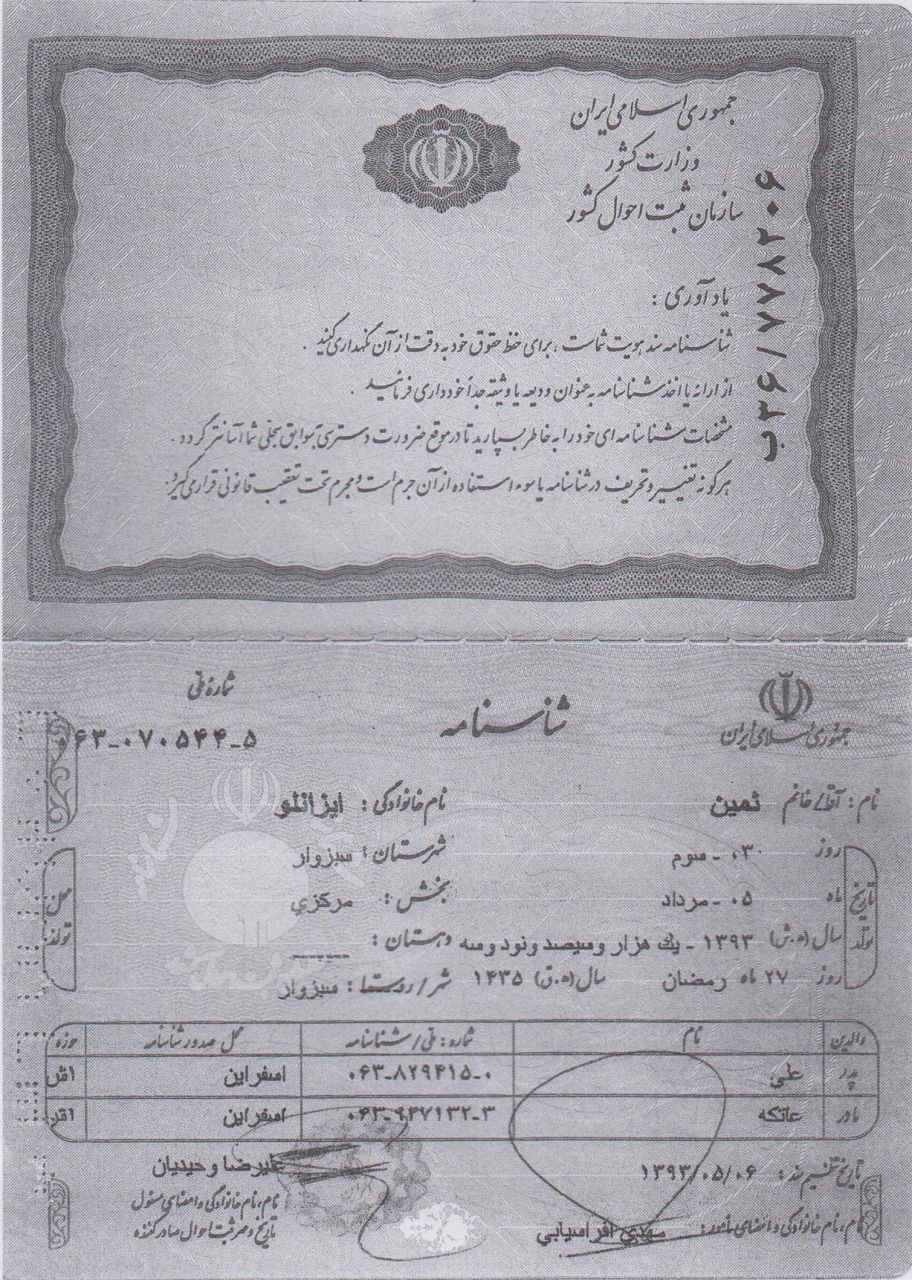 جمهوری اسلامی ایران
وزارت کشور
سازمان ثبت احوال کشور
ب۳۶/۷۷۸۲۰۶
یادآوری :
شناسنامه سند هویت شماست ، برای حفظ حقوق خود به دقت از آن نگهداری کنید .
از ارائه یا اخذ شناسنامه به عنوان ودیعه یا وثیقه جداً خودداری فرمائید .
مشخصات شناسنامه ای خود را به خاطر بسپارید تا در موقع ضرورت دسترسی بسوابق سجلی شما آسانتر گردد .
هرگونه تغییر و تحریف در شناسنامه یا سوء استفاده از آن جرم است و مجرم تحت تعقیب قانونی قرار می گیرد.
جمهوری اسلامی ایران
شناسنامه
شماره ملی
۰۶۳-۰۷۰۵۴۴-۵
نام : آقا/خانم ثمین نام خانوادگی : ایزانلو
تاریخ تولد
روز ۳۰ - سوم
ماه ۰۵ - مرداد
سال (ه.ش) ۱۳۹۳ - یك هزار و سیصد و نود و سه
روز ۲۷ ماه رمضان سال (ه.ق) ۱۴۳۵
محل تولد
شهرستان : سبزوار
بخش : مرکزي
دهستان : -------
شهر/روستا : سبزوار
والدین نام شماره : ملی/شناسنامه محل صدور شناسنامه حوزه
پدر علی ۰۶۳-۸۲۹۴۱۵-۰ اسفراین
مادر عاتکه ۰۶۳-۹۴۷۱۳۲-۳ اسفراین
تاریخ تنظیم سند : ۱۳۹۳/۰۵/۰۶
نام، نام خانوادگی و امضای مأمور : مهدي افراسیابي
علیرضا وحیدیان
نام، نام خانوادگی و امضای مسئول
تاریخ و مهر ثبت احوال صادرکننده